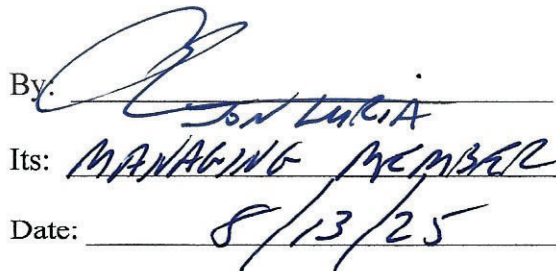 By:
JON LURIA
Its: MANAGING MEMBER
Date: 8/13/25